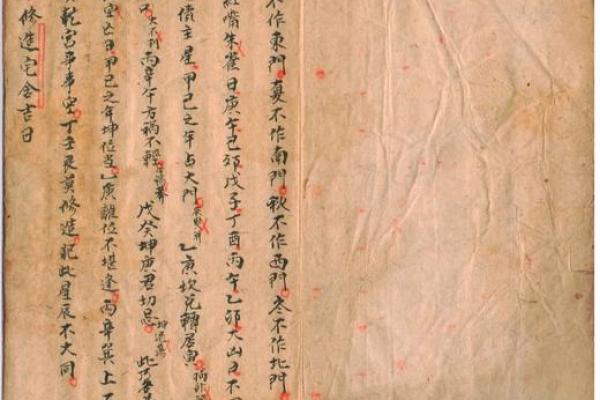 不作東門夏不作南門秋不作西門冬不作北門
紅嘴朱雀日庚午己卯戊子丁酉丙午乙卯大凶日不用
債主星甲己之年占大門 乙庚坎兌轉居寅
大不利丙辛午方禍不輕 戊癸坤庚君切忌 此乃
空亡日甲己之年坤位當乙庚離位不堪逢丙辛巽上
乾宮辛年空丁壬艮莫修造犯此星辰不大同
修造宅舍吉日